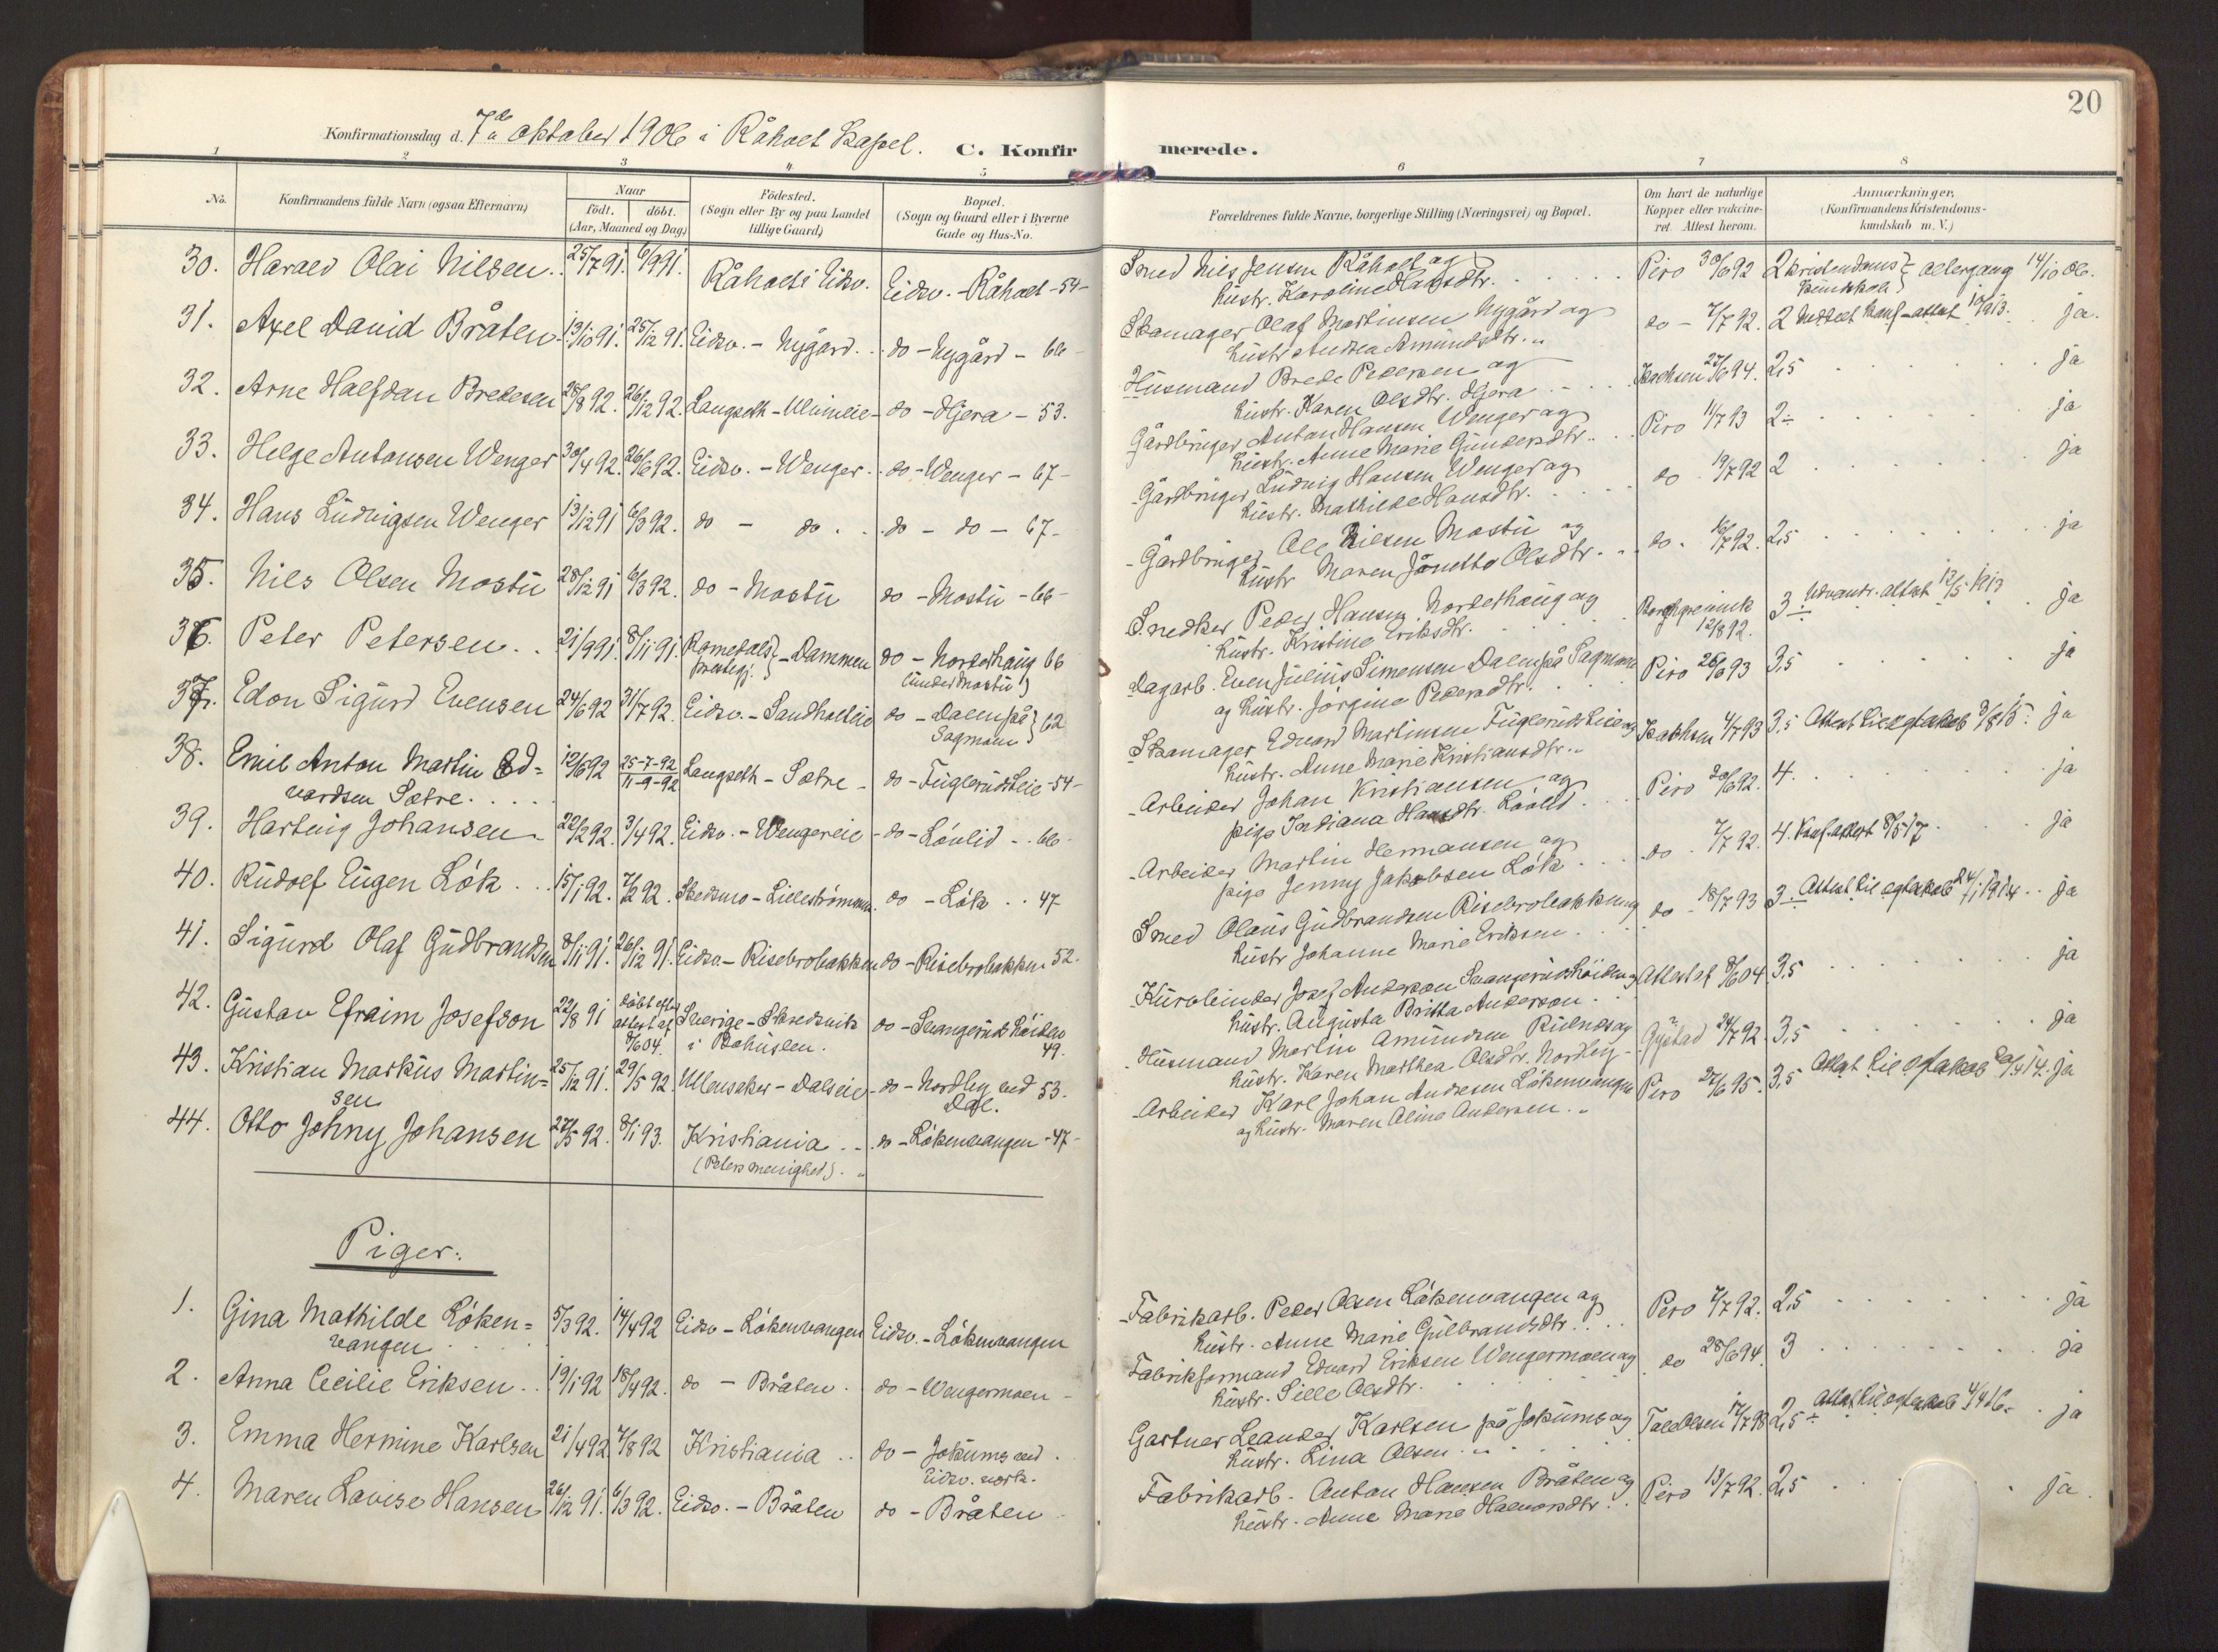 20
Konfirmationsdag d. 7de oktober 1906 i Råholt Kapel.
C. Konfirmerede.
1 2 3 4 5 6 7 8
No.
Konfirmandens fulde Navn (ogsaa Efternavn)
Naar
födt. döbt.
(Aar, Maaned og Dag)
Födested.
(Sogn eller By og paa Landet
tillige Gaard)
Bopæl.
(Sogn og Gaard eller i Byerne
Gade og Hus-No.
Forældrenes fulde Navne, borgerlige Stilling (Næringsvei) og Bopæl.
Om havt de naturlige
Kopper eller vakcine-
ret. Attest herom.
Anmærkninger.
(Konfirmandens Kristendoms-
kundskab m. V.)
30. Harald Olai Nilsen. 25/7 91. 6/9 91. Råholt i Eidsv. Eidsv. - Råholt - 54 -
Smed Nils Jensen Råholt og
hustr. Karoline Hansdtr. Piro 30/6 92 2 kristendoms- kundskab altergang 14/10 06.
31. Axel David Bråten 13/10 91. 25/12 91. Eidsv. - Nygård. do - Nygård - 66
Skomager Olaf Martinsen Nygård og
hustr. Andrea Amundsdtr. do - 7/7 92. 2 ja.
32. Arne Halfdan Bredesen 28/8 92. 26/12 92. Langseth - do - Hjera - 53.
Husmand Brede Pedersen og
hustr. Karen Olsdtr. Hjera 27/6 94. 2,5 ja
33. Helge Antonsen Wenger 30/4 92. 26/6 92. Eidsv. - Wenger. do - Wenger - 67 -
Gårdbruger Anton Hansen Wenger og
hustr. Anne Marie Gundersdtr. Piro 11/7 93 2 ÷ ja
34. Hans Ludvigsen Wenger 13/12 91 6/3 92. do - do. do - do - 67 -
Gårdbruger Ludvig Hansen Wenger og
hustr. Mathilde Hansdtr. do 19/7 92 2 ja
35. Nils Olsen Mostu 28/12 91 6/3 92. do - Mostu do - Mostu - 66 -
Gårdbruger Ole Nilsen Mostu og
hustr. Maren Jånette Olsdtr. do. 16/7 92. 2,5 ja
36. Peter Petersen. 21/9 91. 8/11 91. Romedals prestegj. - Dammen do - Nordhaug 66
(under Mostu)
Snedker Peder Hansen Nordhaug og
hustr. Kristine Eriksdtr. Borchgrevinck
12/8 92. 3 ÷ Udvandr. attest 12/5 1913 ja
37. Edon Sigurd Evensen 24/6 92 31/7 92. Eidsv. - Sandholteie do - Dalen på
Sagmoen 62
Dagarb. Even Julius Simensen Dalen på Sagmoen
og hustr. Jørgine Pedersdtr. Piro 26/6 93 3,5 ja
38. Emil Anton Martin Ed=
vardsen Sætre. 12/6 92 25-7-92
11-9-92 Langseth - Sætre - do - Fuglerudseie - 54 -
Skomager Edvard Martinsen Fuglerudseie og
hustr. Anne Marie Kristiansdtr. 4/7 93 3,5 Attest til egteskab 3/8 15. ja
39. Hartvig Johansen 22/2 92. 3/4 92. Eidsv. - Wengereie - do - Lövlid - 66
Arbeider Johan Kristiansen og
pige Indiana Hansdtr. Lövlid. Piro 20/6 92. 4. ja
40. Rudolf Eugen Lök 15/1 92. 7/2 92. Skedsmo - Lillestrømmen. do - Lök 47
Arbeider Martin Hermansen og
pige Jenny Jakobsen Lök do. 7/7 92. 4. Konf. attest 8/5 17 ja
41. Sigurd Olaf Gudbrandsen 8/11 91. 26/12 91. Eidsv. - Risebrobakken do - Risebrobakken 52.
Smed Olaus Gudbrandsen Risebrobakken og
hustr. Johanne Marie Eriksen. do 18/7 93 3 ÷ Attest til egteskab 24/1 1914. ja
42. Gustav Efraim Josefson 22/8 91 döbt efter
attest af
8/6 04. Sverige - Skredsvik
i Bohuslen. do - Svangerudshöiden
49.
Kurvbinder Josef Anderson Svangerudshöiden og
hustr. Augusta Britta Anderson. Attest af 8/6 04. 3,5 ja
43. Kristian Markus Martin=
sen 25/12 91. 29/5 92. Ullensaker - Dalseie - do - Nordby ved 53.
Dal.
Husmand Martin Amundsen og
hustr. Karen Marthea Olsdtr. Nordby - Gystad 24/7 92. 3,5 ja
44. Otto Johny Johansen 27/5 92. 8/1 93. Kristiania
(Peters menighed). do - Lökenvangen - 47 -
Arbeider Karl Johan Andersen Lökenvangen
og hustr. Maren Aline Andersen. Piro 27/6 95. 3,5 Attest til egteskab 14. ja
Piger:
1. Gina Mathilde Löken=
vangen 5/3 92. 14/4 92 Eidsv - Lökenvangen Eidsv. - Lökenvangen
Fabrikarb. Peder Olsen Lökenvangen og
hustr. Anne Marie Gulbrandsdtr. Piro 7/7 92. 2,5 ja
2. Anna Cecilie Eriksen 19/1 92 18/4 92. do - Bråten. do - Wengermoen -
Fabrikformand Edvard Eriksen Wengermoen og
hustr. Sille Olsdtr. do 28/6 94. 3 ja
3. Emma Hermine Karlsen 21/4 92 7/8 92 Kristiania do - Jokums ved
Eidsv. verk.
Gartner Leander Karlsen på Jokums og
hustr. Lina Olsen. 2,5 ÷ attest til egteskab 4/4 16. ja
4. Maren Lovise Hansen 26/12 91. 6/3 92. Eidsv. - Bråten do - Bråten
Fabrikarb. Anton Hansen Bråten og
hustr. Anne Marie Halvorsdtr. Piro 13/7 92. 2,5 ja.